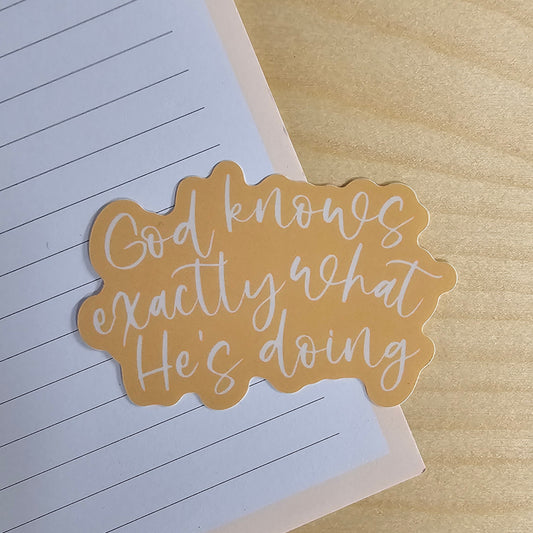 God knows
exactly what
He's doing